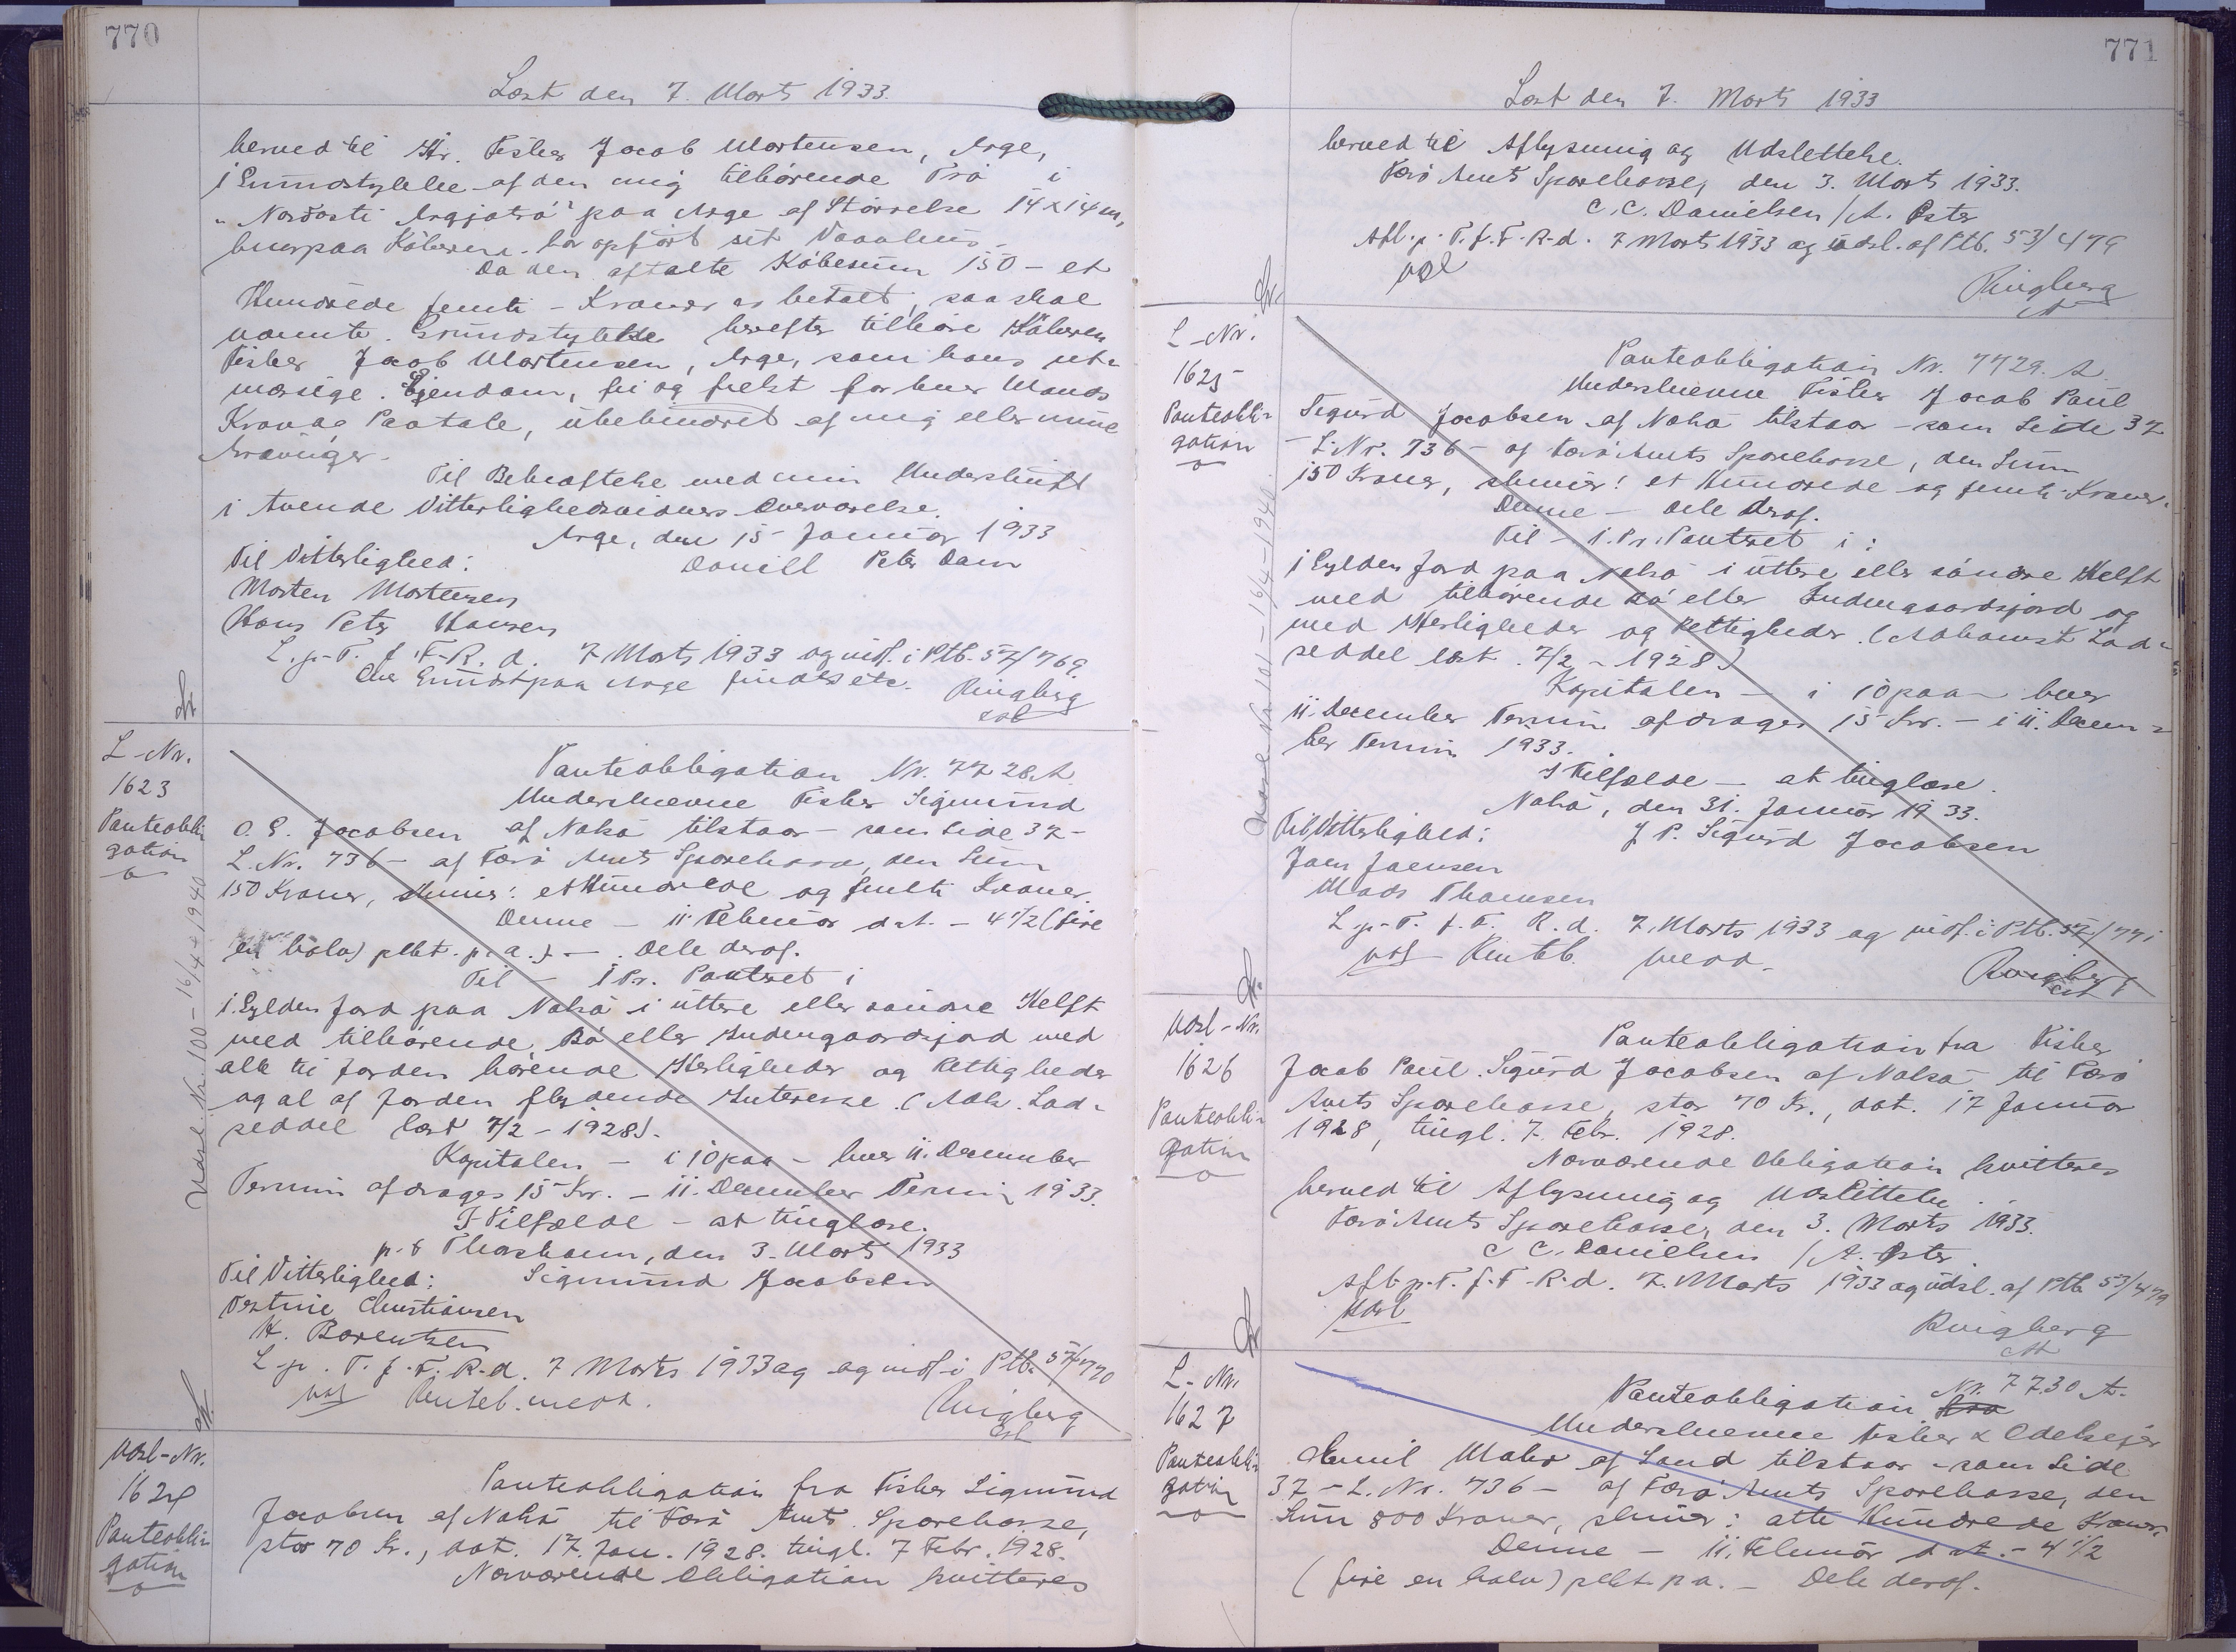 770
Læst den 7. Marts 1933.
herved til Hr. Fisker Jacob Mortensen, Arge,
1 Grundstykke af den mig tilhørende Trø i
"Norðasti Argjatrø" paa Arge af Størrelse 14 x 14 m,
hvorpaa Køberen har opført sit Vaanhus.
Da den aftalte Købesum 150 - et
Hundrede femti - Kroner er betalt, saa skal
nævnte Grundstykke herefter tilhøre Køberen
Fisker Jacob Mortensen, Arge, som hans ret-
mæssige Ejendom, fri og frelst for hver Mands
Krav og Paatale, ubehindret af mig eller mine
Arvinger.
Til Bekræftelse med min Underskrift
i tvende Vitterlighedsvidners Overværelse.
Arge, den 15 Januar 1933
Til Vitterlighed: Daniell Peter Dam
Morten Mortensen
Hans Peter Hansen
L. p. T. f. F. R. d. 7 Marts 1933 og indf. i Ptb. 57/769.
Cher Grundstpaa Arge findes etc. Ringberg
L-Nr.
1623
Panteobli-
gation
Udsl. Nr. 100 - 16/4 - 1940
Panteobligation Nr. 7728 A
Underskrevne Fisker Sigmund
O. E. Jacobsen af Nolsø tilstaar - som Side 37 -
L. Nr. 736 - af Færø Amts Sparekasse, den Sum
150 Kroner, skriver: et Hundrede og femti Kroner.
Denne - 11. Februar d. A. - 4 1/2 (fire
en halv) pCt. p. a.) - Dele deraf.
Til - 1 Pr. Panteret i
1 Gylden Jord paa Nolsø i uttere eller søndre Helft
med tilhørende Bø eller Indengaardsjord med
alle til Jorden hørende Herligheder og Rettigheder
og al af Jorden flydende Interesse. (Adk. Lod-
seddel læst 7/2 - 1928).
Kapitalen - i 10 paa - hver 11. December
Termin afdrages 15 Kr. - 11. December Termin 1933.
I Tilfælde - at tinglæse.
p. t Thorshavn, den 3. Marts 1933
Til Vitterlighed: Sigmund Jacobsen
Christiansen
H. Berentsen
L. p. T. f. F. R. d. 7 Marts 1933 og og indf. i Ptb. 57/770
Kvitteb. medd.
Ringberg
Udsl-Nr.
1624
Panteobli-
gation
Panteobligation fra Fisker Sigmund
Jacobsen af Nolsø til Færø Amts Sparekasse,
stor 70 Kr., dat. 17. Jan. 1928. tingl. 7 Febr. 1928.
Nærværende Obligation kvitteres
771
Læst den 7. Marts 1933
herved til Aflysning og Udslettelse.
Færø Amts Sparekasse, den 3. Marts 1933.
C. C. Danielsen / A. Øster
Afl. p. T. f. F. R. d. 7 Marts 1933 og udsl. af Ptb. 53/479
Ringberg
L-Nr.
1625
Panteobli-
gation
Udsl. Nr. 101 - 16/4 - 1940
Panteobligation Nr. 7729. A
Underskrevne Fisker Jacob Paul
Sigurd Jacobsen af Nolsø tilstaar - som Side 37
- L. Nr. 736 - af Færø Amts Sparekasse, den Sum
150 Kroner, skriver: et Hundrede og femti Kroner.
Denne - Dele deraf.
Til - 1. Pr. Panteret i:
1 Gylden Jord paa Nolsø i uttere eller søndre Helft
med tilhørende Bø eller Indengaardsjord og
med Herligheder og Rettigheder. (Adkomst Lod-
seddel læst 7/2 - 1928)
Kapitalen - i 10 paa - hver
11. December Termin afdrages 15 Kr. - i 11. Decem-
ber Termin 1933.
I Tilfælde - at tinglæse.
Nolsø, den 31. Januar 1933.
Til Vitterlighed: J P. Sigurd Jacobsen
Joen Joensen
Mads Thomsen
L. p. T. f. F. R. d. 7. Marts 1933 og indf. i Ptb. 57/771
Kvitteb. medd.
Ringberg
Udsl-Nr.
1626
Panteobli-
gation
Panteobligation fra Fisker
Jacob Paul Sigurd Jacobsen af Nolsø til Færø
Amts Sparekasse, stor 70 Kr., dat. 17 Januar
1928, tingl. 7. Febr. 1928.
Nærværende Obligation kvitteres
herved til Aflysning og Udslettelse
Færø Amts Sparekasse, den 3. Marts 1933.
C. C. Danielsen / A. Øster
Afl. p. T. f. F. R. d. 7. Marts 1933 og udsl. af Ptb 53/479
Udsl
Ringberg
L-Nr.
1627
Panteobli-
gation
Panteobligation Nr. 7730 A.
Underskrevne Fisker & Odelsejer
Mohr af Sand tilstaar - som Side
37 - L. Nr. 736 - af Færø Amts Sparekasse, den
Sum 800 Kroner, skriver: otte Hundrede Kroner.
Denne - 11. Februar d. A. - 4 1/2
(fire en halv) pCt. p. a. - Dele deraf.